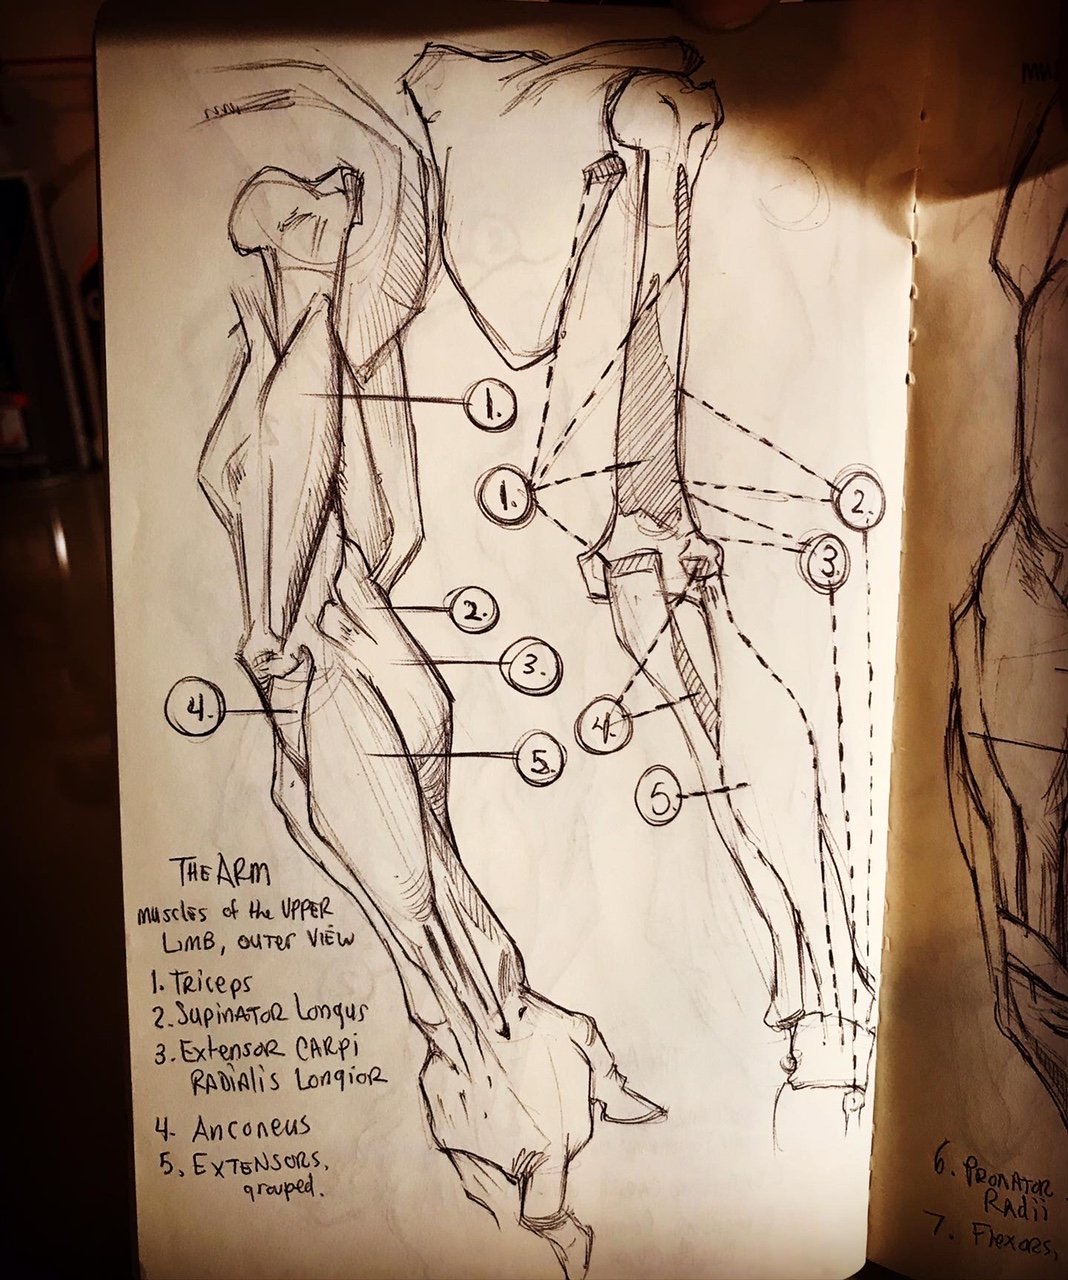 1.
1.
2.
3.
2.
3.
4.
4.
5.
5.
THE ARM
muscles of the UPPER
LIMB, OUTER VIEW
1. Triceps
2. SUPINATOR LONGUS
3. Extensor CARPI
RADIALIS LONGIOR
4. Anconeus
5. EXTENSORS,
grouped.
6. PRONATOR
Radii
7. Flexors,